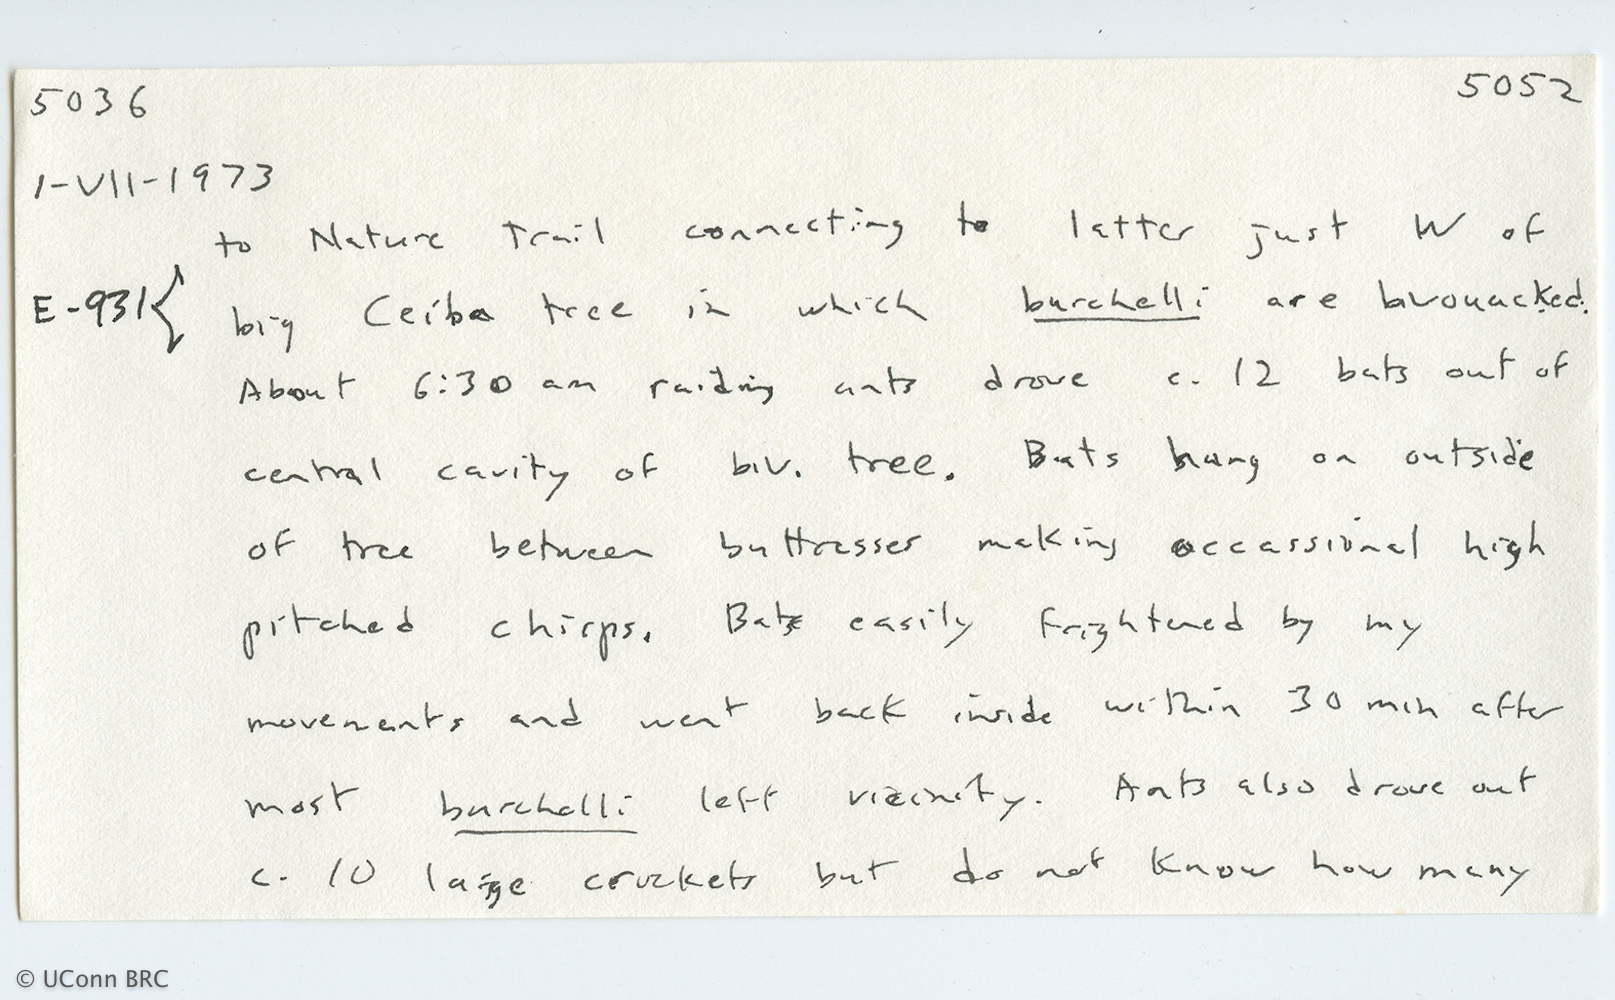 5036 5052
1-VII-1973
to Nature Trail connecting to latter just W of
E-931{ big Ceiba tree in which burchelli are bivouacked.
About 6:30 am raiding ants drove c. 12 bats out of
central cavity of biv. tree. Bats hung on outside
of tree between buttresses making occassional high
pitched chirps. Bats easily frightened by my
movements and went back inside within 30 min after
most burchelli left vicinity. Ants also drove out
c. 10 large crickets but do not know how many
© UConn BRC